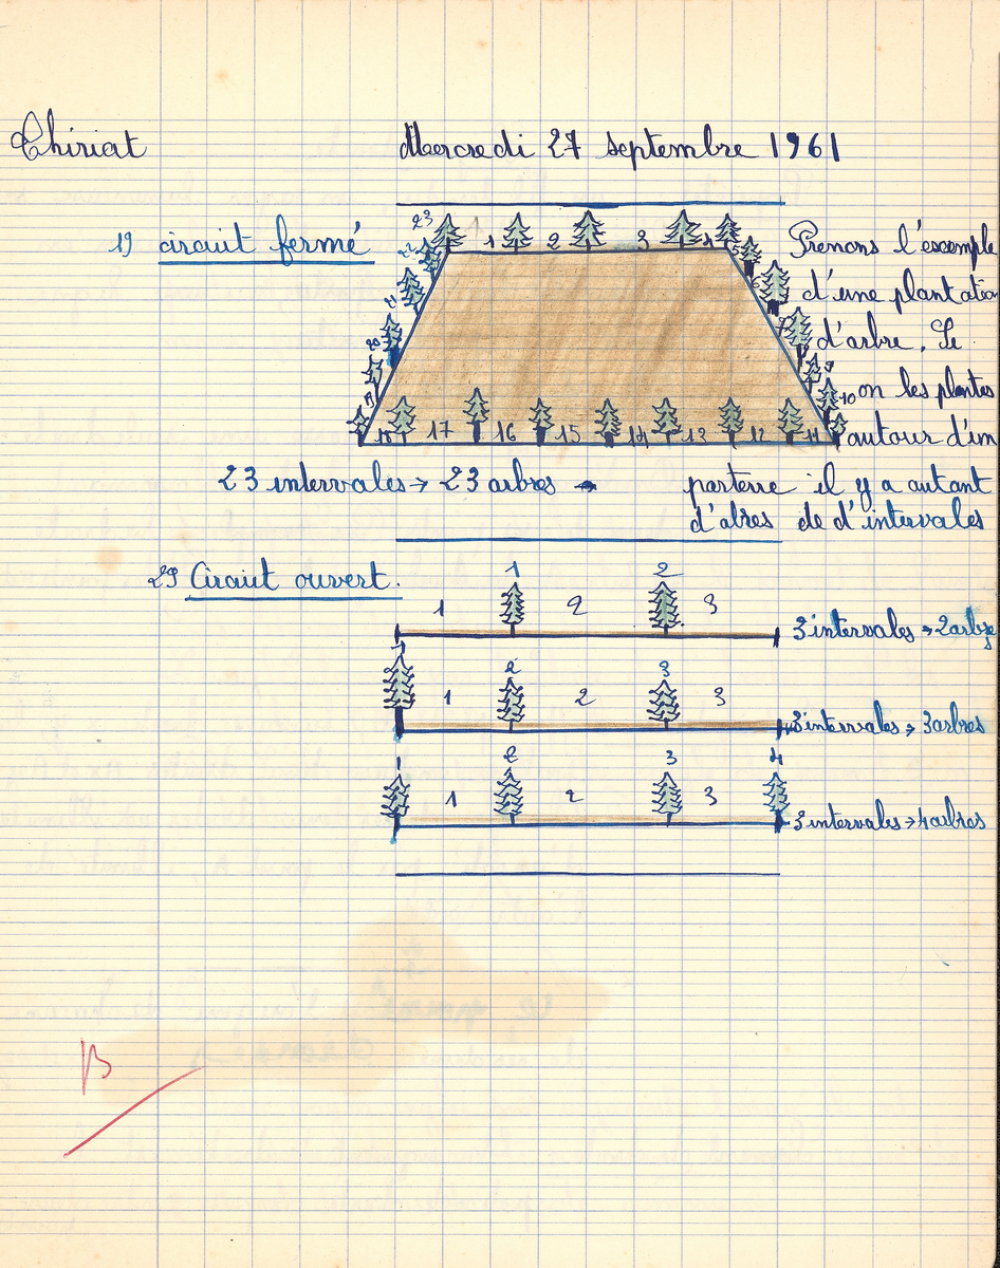 Chiriat
Mercredi 27 septembre 1961
1º circuit fermé
23 1 2 3 4 5
22 6
21 7
20 8 9
19 10
18 17 16 15 14 13 12 11
Prenons l'exemple
d'une plantation
d'arbre. Se
on les plantes
autour d'un
parterre il y a autant
d'abres de d'intervales
23 intervales → 23 arbres →
2º Circuit ouvert.
1 2
1 2 3
3 intervales → 2 arbres
1 2 3
1 2 3
3 intervales → 3 arbres
1 2 3 4
1 2 3
3 intervales → 4 arbres
B